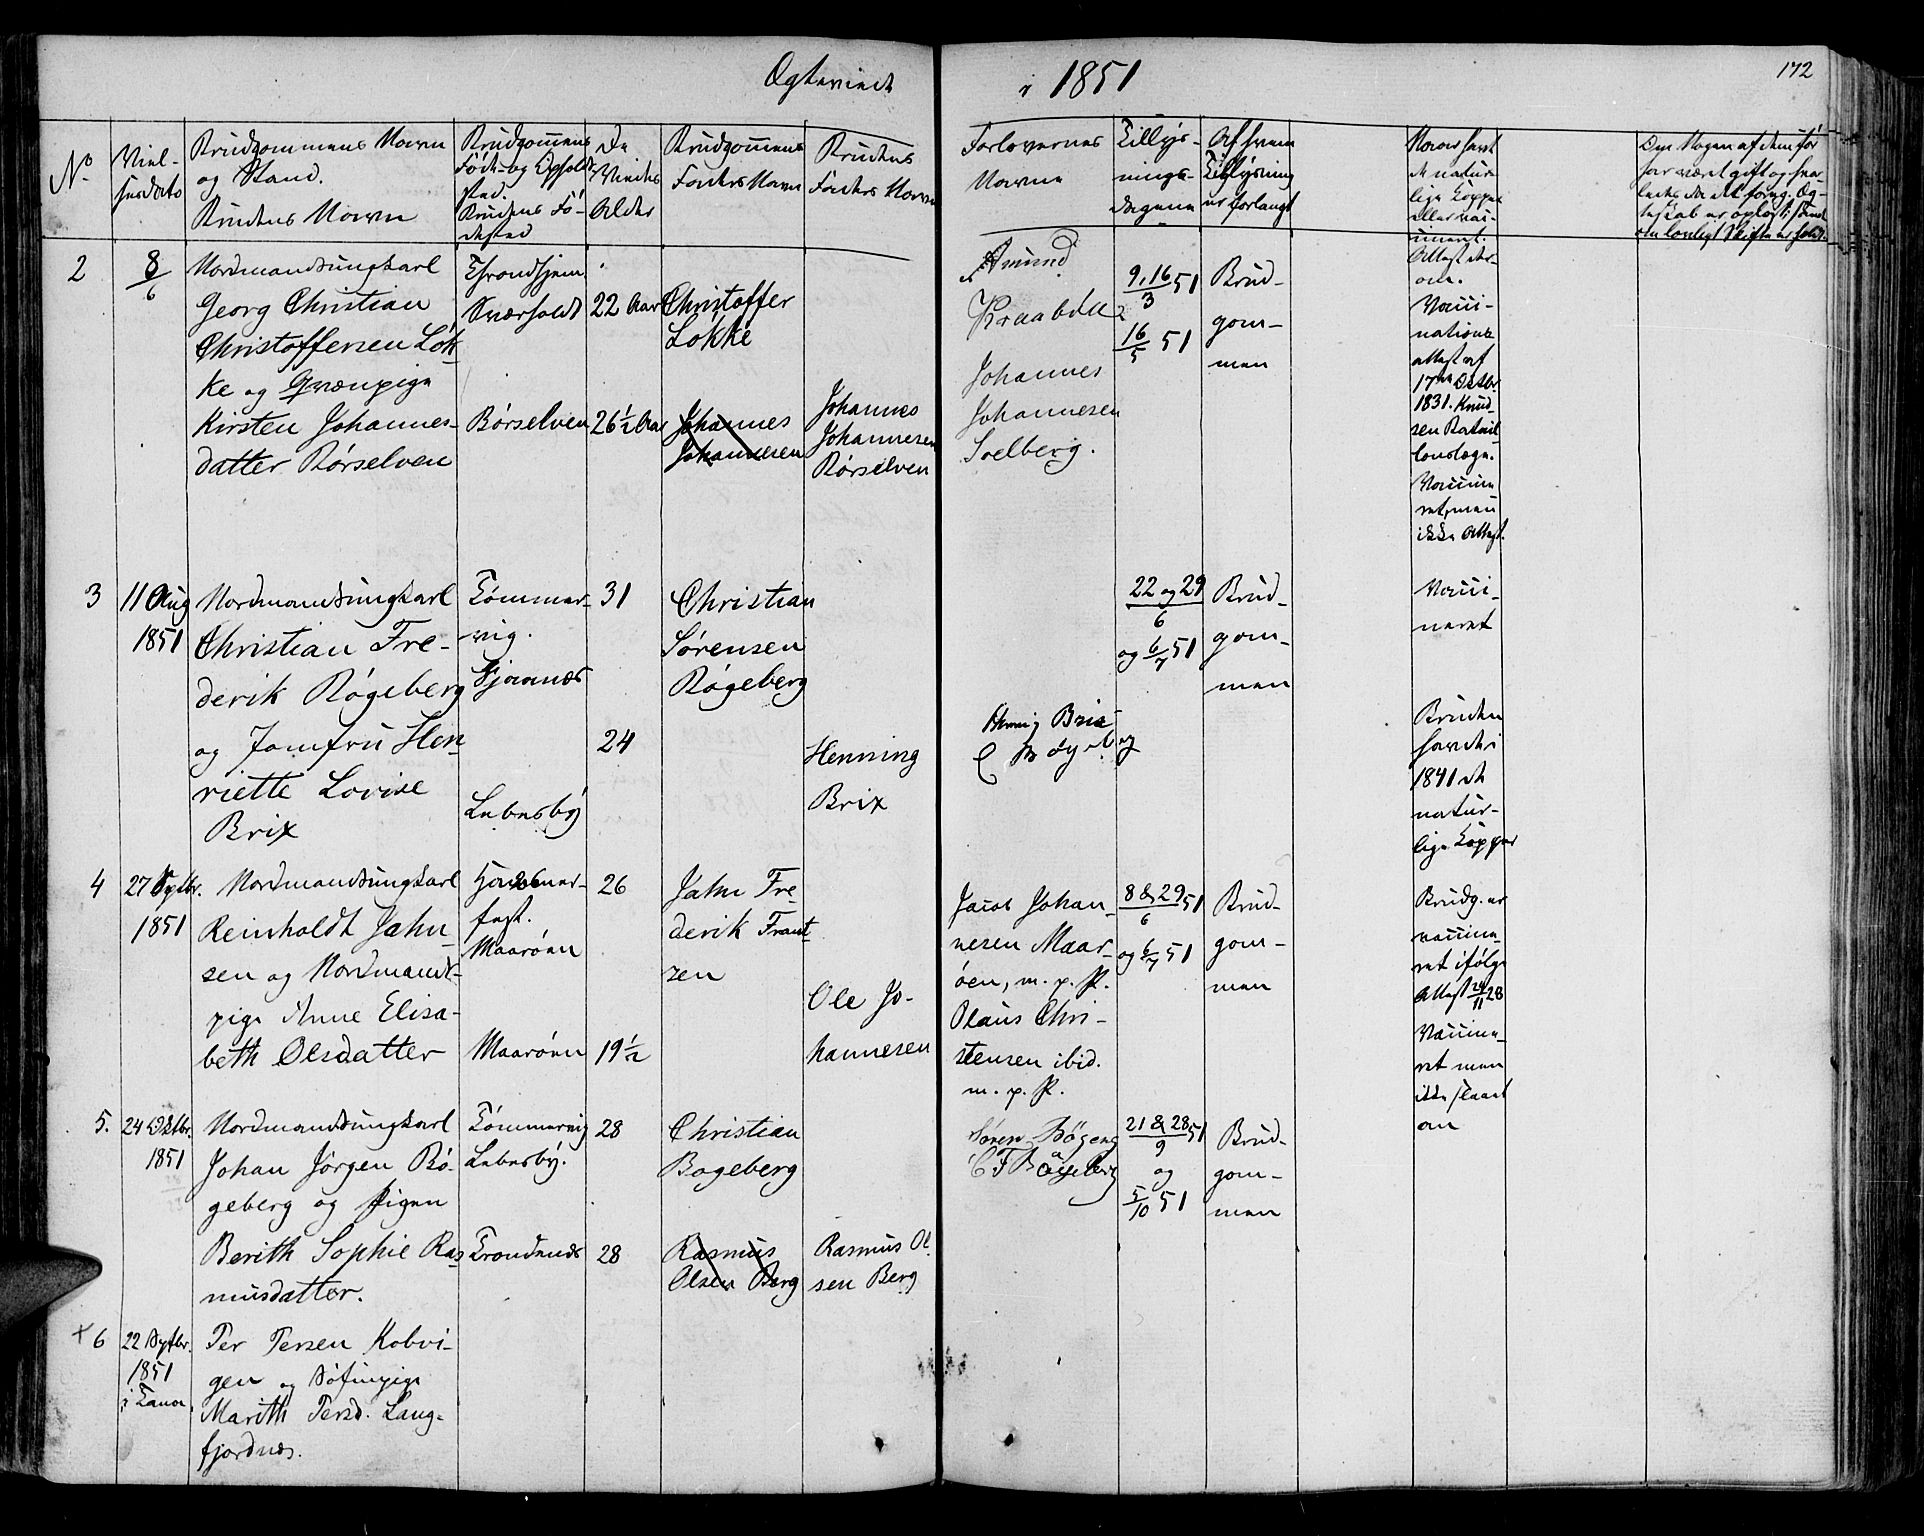 Ægteviede
i 1851
172
No
Viel-
sesdato
Brudgommens Navn
og Stand.
Brudens Navn
Brudgomens
Føde- og Opholds
sted.
Brudens Fø-
dested
De
Viedes
Alder
Brudgomens
Faders Navn
Brudens
Faders Navn
Forlovernes
Navne
Tillys-
nings-
dagene
Af hvem
Tillysning
er forlangt
Hvor havt
de natur-
lige Kopper
eller vac-
cineret.
Attest der-
om.
Om Nogen af dem før
har været gift og hvor-
ledes da det forrige Æg-
teskab er opløst; samt
om lovligt Skifte er holdt.
2
8/6
Nordmandsungkarl
Georg Christian
Christoffersen Løk-
ke og Qvænpige
Kirsten Johannes-
datter Børselven
Throndhjem
Sværholdt
Børselven
22 Aar
26½ Aar
Christoffer
Løkke
Johannes
Johannesen
Johannes
Johannesen
Børselven
Amund
Kraabøl
Johannes
Johannesen
Soelberg.
9, 16/3 51
16/5 51
Brud-
gom-
men
Vacci-
nations
attest af
17de Octbr
1831. Knud-
sen Batail-
lonslæge.
Vaccine-
ret, men
ikke Attest.
3
11 Aug
1851
Nordmandsungkarl
Christian Fre-
derik Bøgeberg
og Jomfru Hen-
riette Lovise
Brix
Tømmer-
vig.
Lebesby
31
24
Christian
Sørensen
Bøgeberg
Henning
Brix
22 og 29/6
og 6/7 51
Brud-
gom-
men
Vacci-
neret
Bruden
havde i
1841 de
natur-
lige Kopper
4
27 Septbr.
1851
Nordmandsungkarl
Reinholdt Jahn-
sen og Nordmands-
pige Anne Elisa-
beth Olsdatter
Hammer-
fest.
Maarøen
Maarøen
26
19½
Jahn Fre-
derik Frant-
zen
Ole Jo-
hannesen
Jacob Johan-
nesen Maar-
øen, m. p. P.
Olaus Chri-
stensen ibid.
m. p. P.
8 & 29/6 51
og 6/7 51
Brud-
gom-
men
Brudg. er
vaccine-
ret ifølge
Attest 24/11 28
Vaccine-
ret men
5.
24 Octbr.
1851
Nordmandsungkarl
Johan Jørgen Bø-
geberg og Pigen
Berith Sophie Ras
musdatter.
Tømmervig
Lebesby.
Trondenæs
28
28
Christian
Bøgeberg
Rasmus
Olsen Berg
Rasmus Ol
sen Berg
Søren Bøgeberg
C F Bøgeberg
21 & 28/9 51
og
5/10 51
Brud-
gom-
men
6
22 Septbr.
1851
i Tana
Per Persen Kobvi-
gen og Søfinpige
Marith Persd. Lang-
fjordnæs.